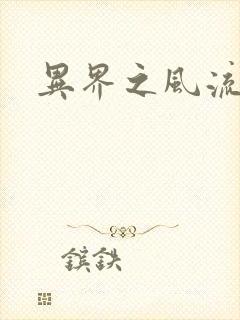 異界之風流
鑌鉄